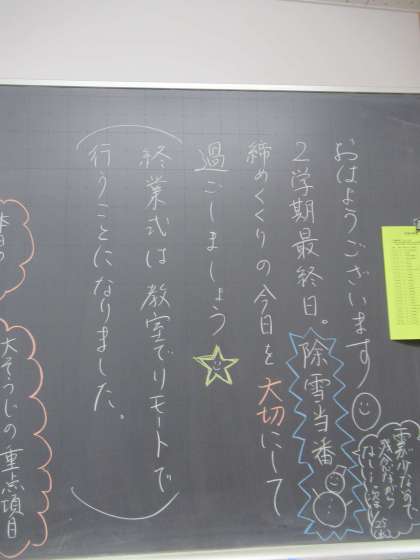 おはようございます
2学期最終日。除雪当番
締めくくりの今日を大切にして
過ごしましょう
(終業式は教室でリモートで
行うことになりました。)
雪が少ないので
残念ながら
なし
本日の
大そうじの重点項目